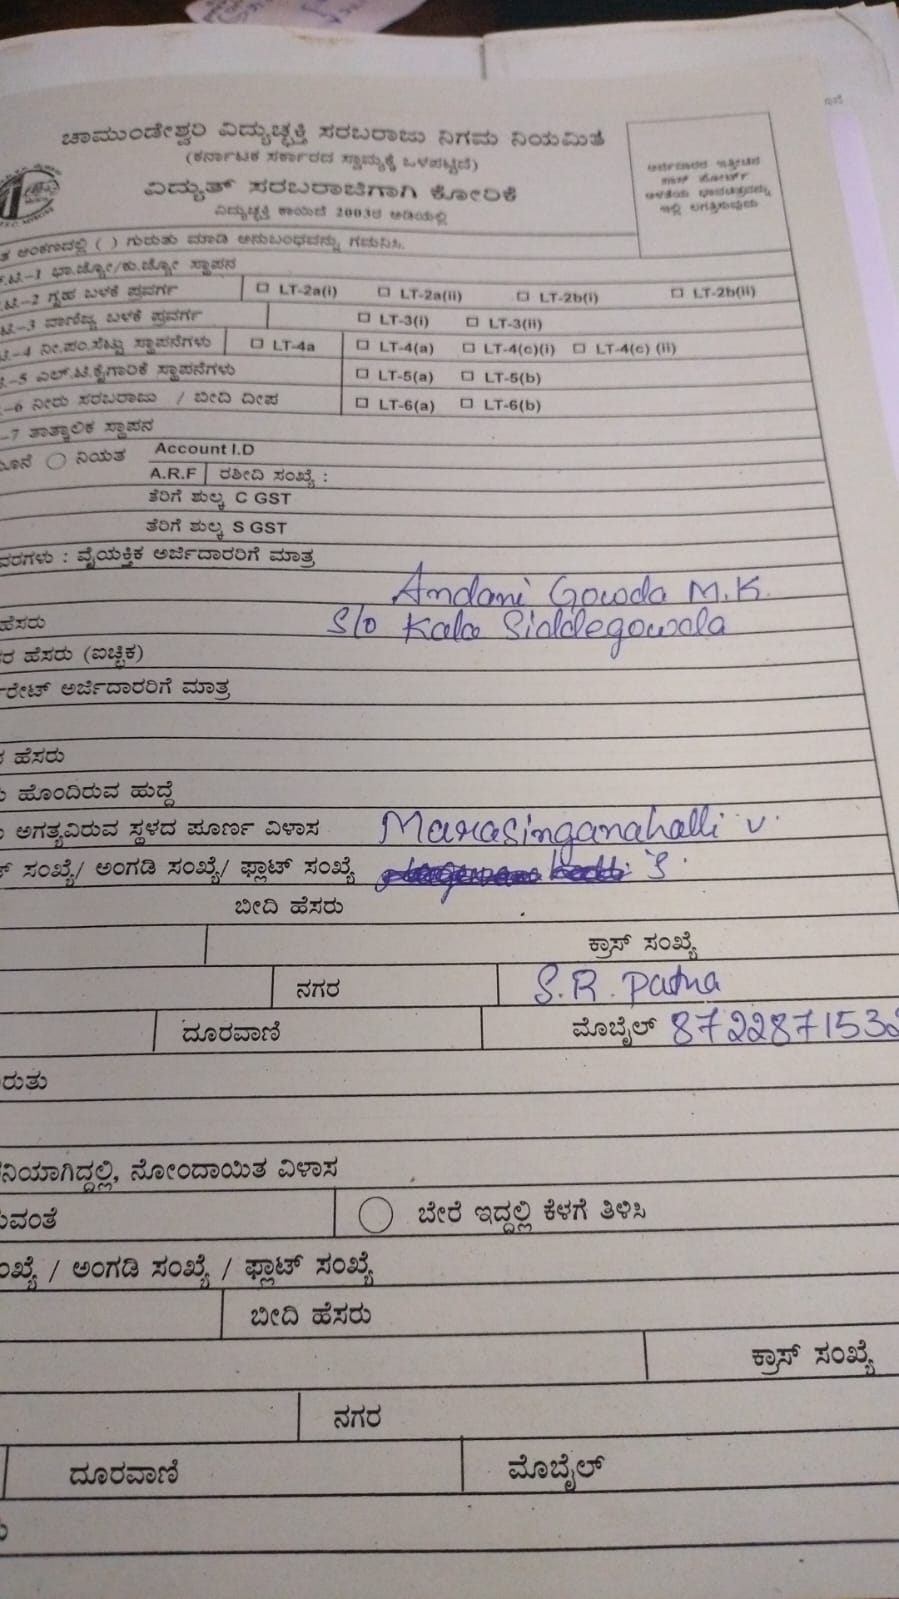 ಚಾಮುಂಡೇಶ್ವರಿ ವಿದ್ಯುಚ್ಛಕ್ತಿ ಸರಬರಾಜು ನಿಗಮ ನಿಯಮಿತ
(ಕರ್ನಾಟಕ ಸರ್ಕಾರದ ಸ್ವಾಮ್ಯಕ್ಕೆ ಒಳಪಟ್ಟಿದೆ)
ವಿದ್ಯುತ್ ಸರಬರಾಜಿಗಾಗಿ ಕೋರಿಕೆ
ವಿದ್ಯುಚ್ಛಕ್ತಿ ಕಾಯಿದೆ 2003ರ ಅಡಿಯಲ್ಲಿ
ಅಂಕಣದಲ್ಲಿ ( ) ಗುರುತು ಮಾಡಿ ಅನುಬಂಧವನ್ನು ಗಮನಿಸಿ.
.ಟಿ.-1 ಭಾ.ಜ್ಯೋ/ಕು.ಜ್ಯೋ ಸ್ಥಾಪನ
.ಟಿ.-2 ಗೃಹ ಬಳಕೆ ಪ್ರವರ್ಗ ☐ LT-2a(i) ☐ LT-2a(ii) ☐ LT-2b(i) ☐ LT-2b(ii)
ಟಿ.-3 ವಾಣಿಜ್ಯ ಬಳಕೆ ಪ್ರವರ್ಗ ☐ LT-3(i) ☐ LT-3(ii)
.-4 ನೀ.ಪಂ.ಸೆಟ್ಟು ಸ್ಥಾಪನೆಗಳು ☐ LT-4a ☐ LT-4(a) ☐ LT-4(c)(i) ☐ LT-4(c) (ii)
.-5 ಎಲ್.ಟಿ.ಕೈಗಾರಿಕೆ ಸ್ಥಾಪನೆಗಳು ☐ LT-5(a) ☐ LT-5(b)
-6 ನೀರು ಸರಬರಾಜು / ಬೀದಿ ದೀಪ ☐ LT-6(a) ☐ LT-6(b)
-7 ತಾತ್ಕಾಲಿಕ ಸ್ಥಾಪನ
ನಿಯತ Account I.D
A.R.F ರಶೀದಿ ಸಂಖ್ಯೆ :
ತೆರಿಗೆ ಶುಲ್ಕ C GST
ತೆರಿಗೆ ಶುಲ್ಕ S GST
ವರಗಳು : ವೈಯಕ್ತಿಕ ಅರ್ಜಿದಾರರಿಗೆ ಮಾತ್ರ
Andani Gowda M.K.
ಹೆಸರು S/o Kala Siddegowda
ರ ಹೆಸರು (ಐಚ್ಛಿಕ)
ರೇಟ್ ಅರ್ಜಿದಾರರಿಗೆ ಮಾತ್ರ
ಹೆಸರು
ಹೊಂದಿರುವ ಹುದ್ದೆ
ಅಗತ್ಯವಿರುವ ಸ್ಥಳದ ಪೂರ್ಣ ವಿಳಾಸ Marasinganahalli v.
ಸಂಖ್ಯೆ/ ಅಂಗಡಿ ಸಂಖ್ಯೆ/ ಫ್ಲಾಟ್ ಸಂಖ್ಯೆ
ಬೀದಿ ಹೆಸರು
ಕ್ರಾಸ್ ಸಂಖ್ಯೆ
ನಗರ S.R. Patna
ದೂರವಾಣಿ ಮೊಬೈಲ್ 872287153
ರುತು
ನಿಯಾಗಿದ್ದಲ್ಲಿ, ನೋಂದಾಯಿತ ವಿಳಾಸ
ುವಂತೆ ಬೇರೆ ಇದ್ದಲ್ಲಿ ಕೆಳಗೆ ತಿಳಿಸಿ
ಂಖ್ಯೆ / ಅಂಗಡಿ ಸಂಖ್ಯೆ / ಫ್ಲಾಟ್ ಸಂಖ್ಯೆ
ಬೀದಿ ಹೆಸರು
ಕ್ರಾಸ್ ಸಂಖ್ಯೆ
ನಗರ
ದೂರವಾಣಿ ಮೊಬೈಲ್